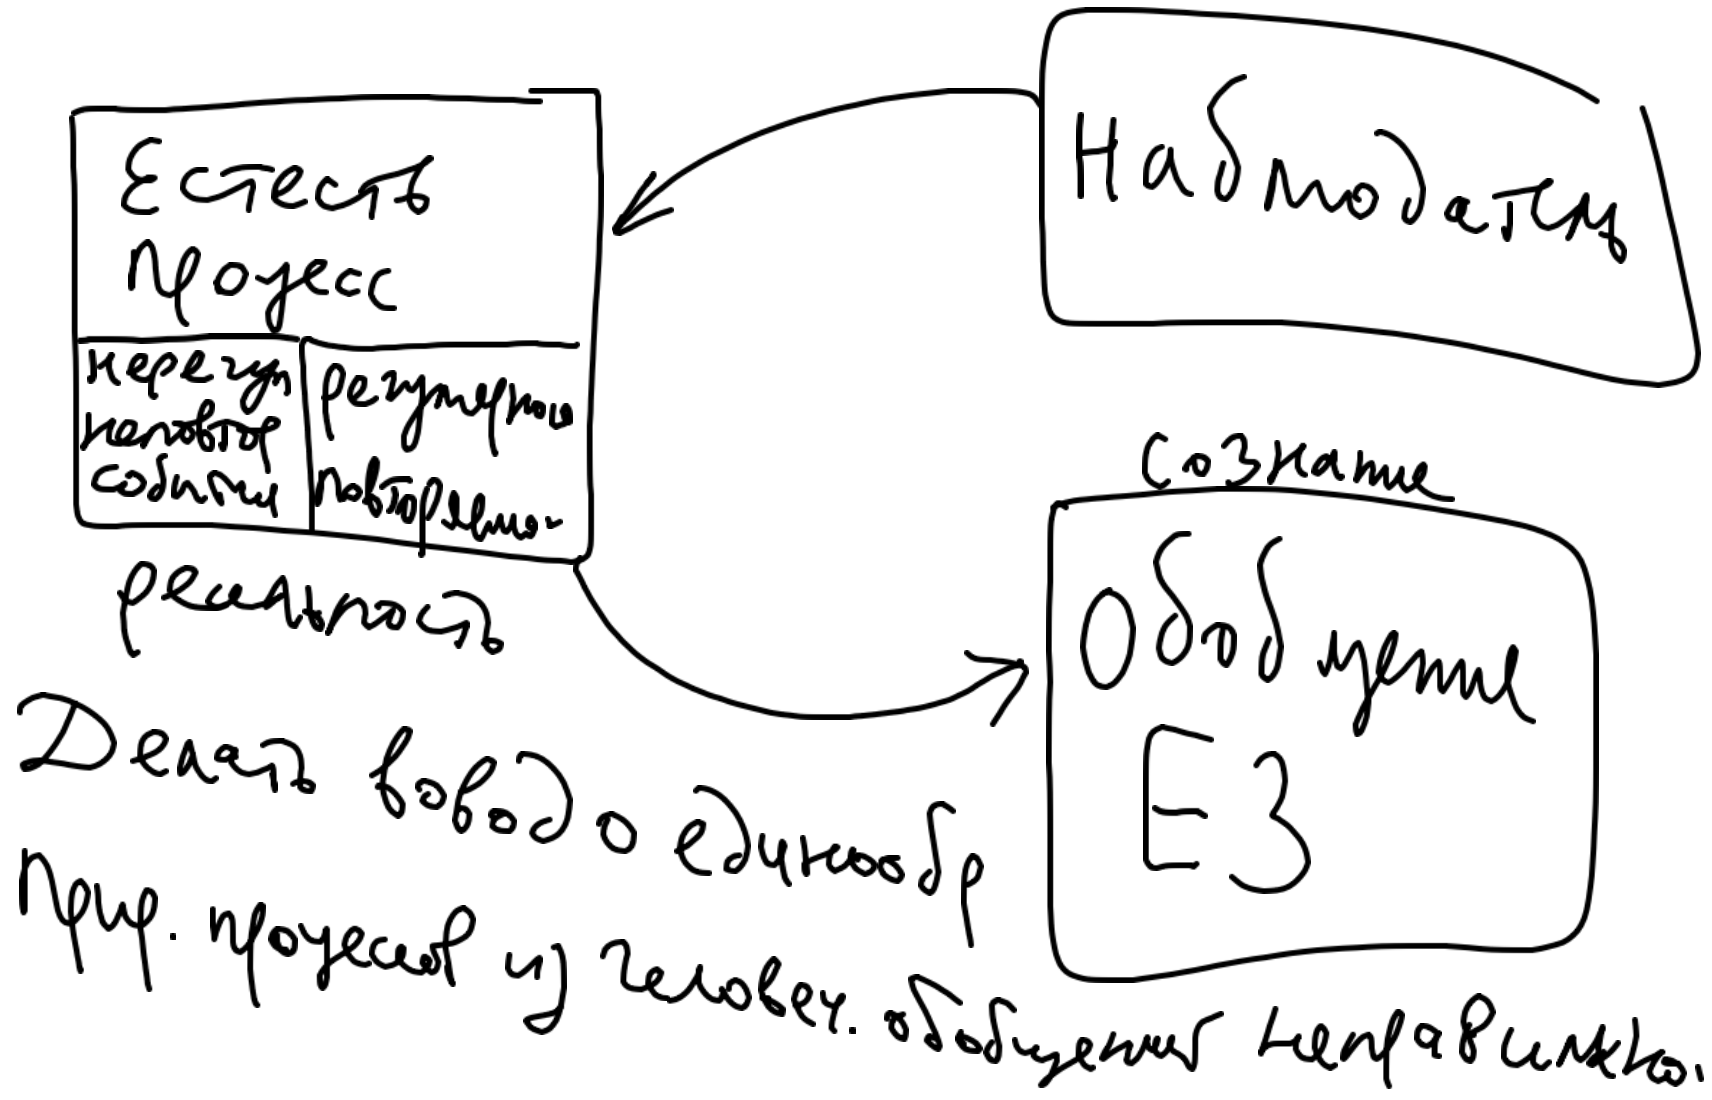 Естеств
Процесс
нерегул
неповтор
события
регулярное
повторяемо-
реальность
Наблюдатель
сознание
Обобщение
ЕЗ
Делать вовод о единообр
Прир. процессов из человеч. обобщений неправильно.